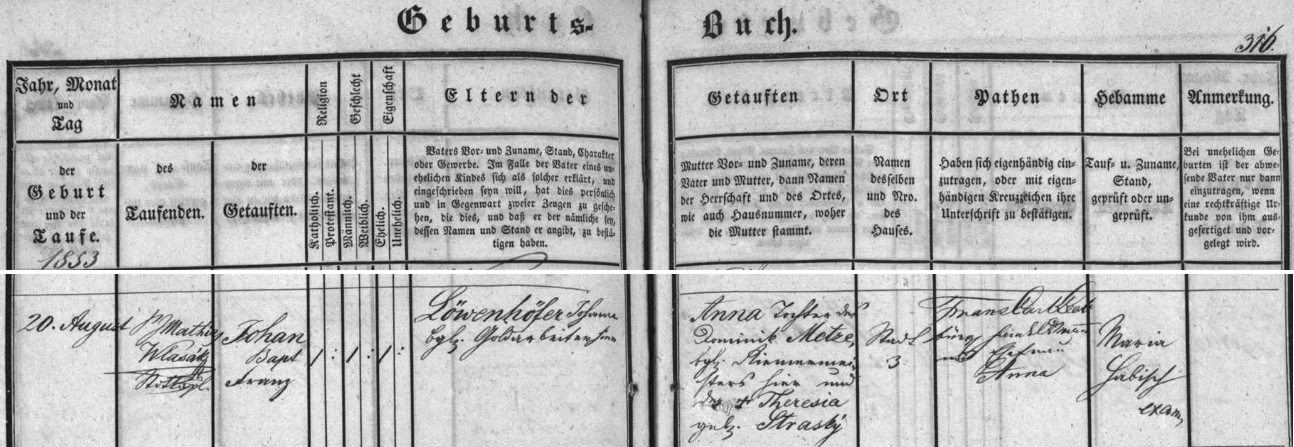 Geburts-Buch.
316.
Jahr, Monat
und
Tag
der
Geburt
und der
Taufe.
1853
Namen
des
Taufenden.
der
Getauften.
Religion
Katholisch.
Protestant.
Geschlecht
Männlich.
Weiblich.
Eigenschaft
Ehelich.
Unehelich.
Eltern der
Vaters Vor- und Zuname, Stand, Charakter
oder Gewerbe. Im Falle der Vater eines un-
ehelichen Kindes sich als solcher erklärt, und
eingeschrieben seyn will, hat dies persönlich
und in Gegenwart zweier Zeugen zu gesche-
hen, die dies, und daß er der nämliche sey,
dessen Namen und Stand er angibt, zu bestä-
tigen haben.
Getauften
Mutter Vor- und Zuname, deren
Vater und Mutter, dann Namen
der Herrschaft und des Ortes,
wie auch Hausnummer, woher
die Mutter stammt.
Ort
Namen
desselben
und Nro.
des
Hauses.
Pathen
Haben sich eigenhändig ein-
zutragen, oder mit eigen-
händigen Kreuzzeichen ihre
Unterschrift zu bestätigen.
Hebamme
Tauf- u. Zuname,
Stand,
geprüft oder un-
geprüft.
Anmerkung.
Bei unehelichen Ge-
burten ist der abwe-
sende Vater nur dann
einzutragen, wenn
eine rechtkräftige Ur-
kunde von ihm aus-
gefertiget und vor-
gelegt wird.
20. August
Mathias
Wlasák
Johan
Bapt
Franz
/: /: /:
Löwenhöfer Johann
bgl. Goldarbeiter hier
Anna Tochter des
Dominik Metze,
bgl. Riemermei-
sters hier und
der + Theresia
geb. Straský
Stadt
3
Franz Carl
und
Anna
Maria
Habisch
exam